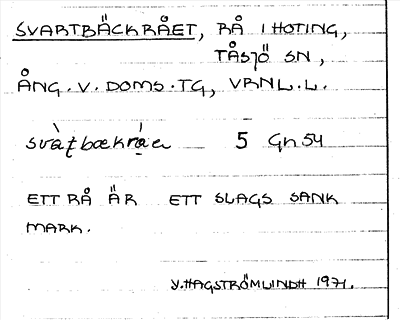 SVARTBÄCKRÅET, RÅ I HOTING,
TÅSJÖ SN,
ÅNG. V. DOMS. TG, VRNL. L.
5 Gn 54
ETT RÅ ÄR ETT SLAGS SANK
MARK.
Y. HAGSTRÖMLINDH 1971.